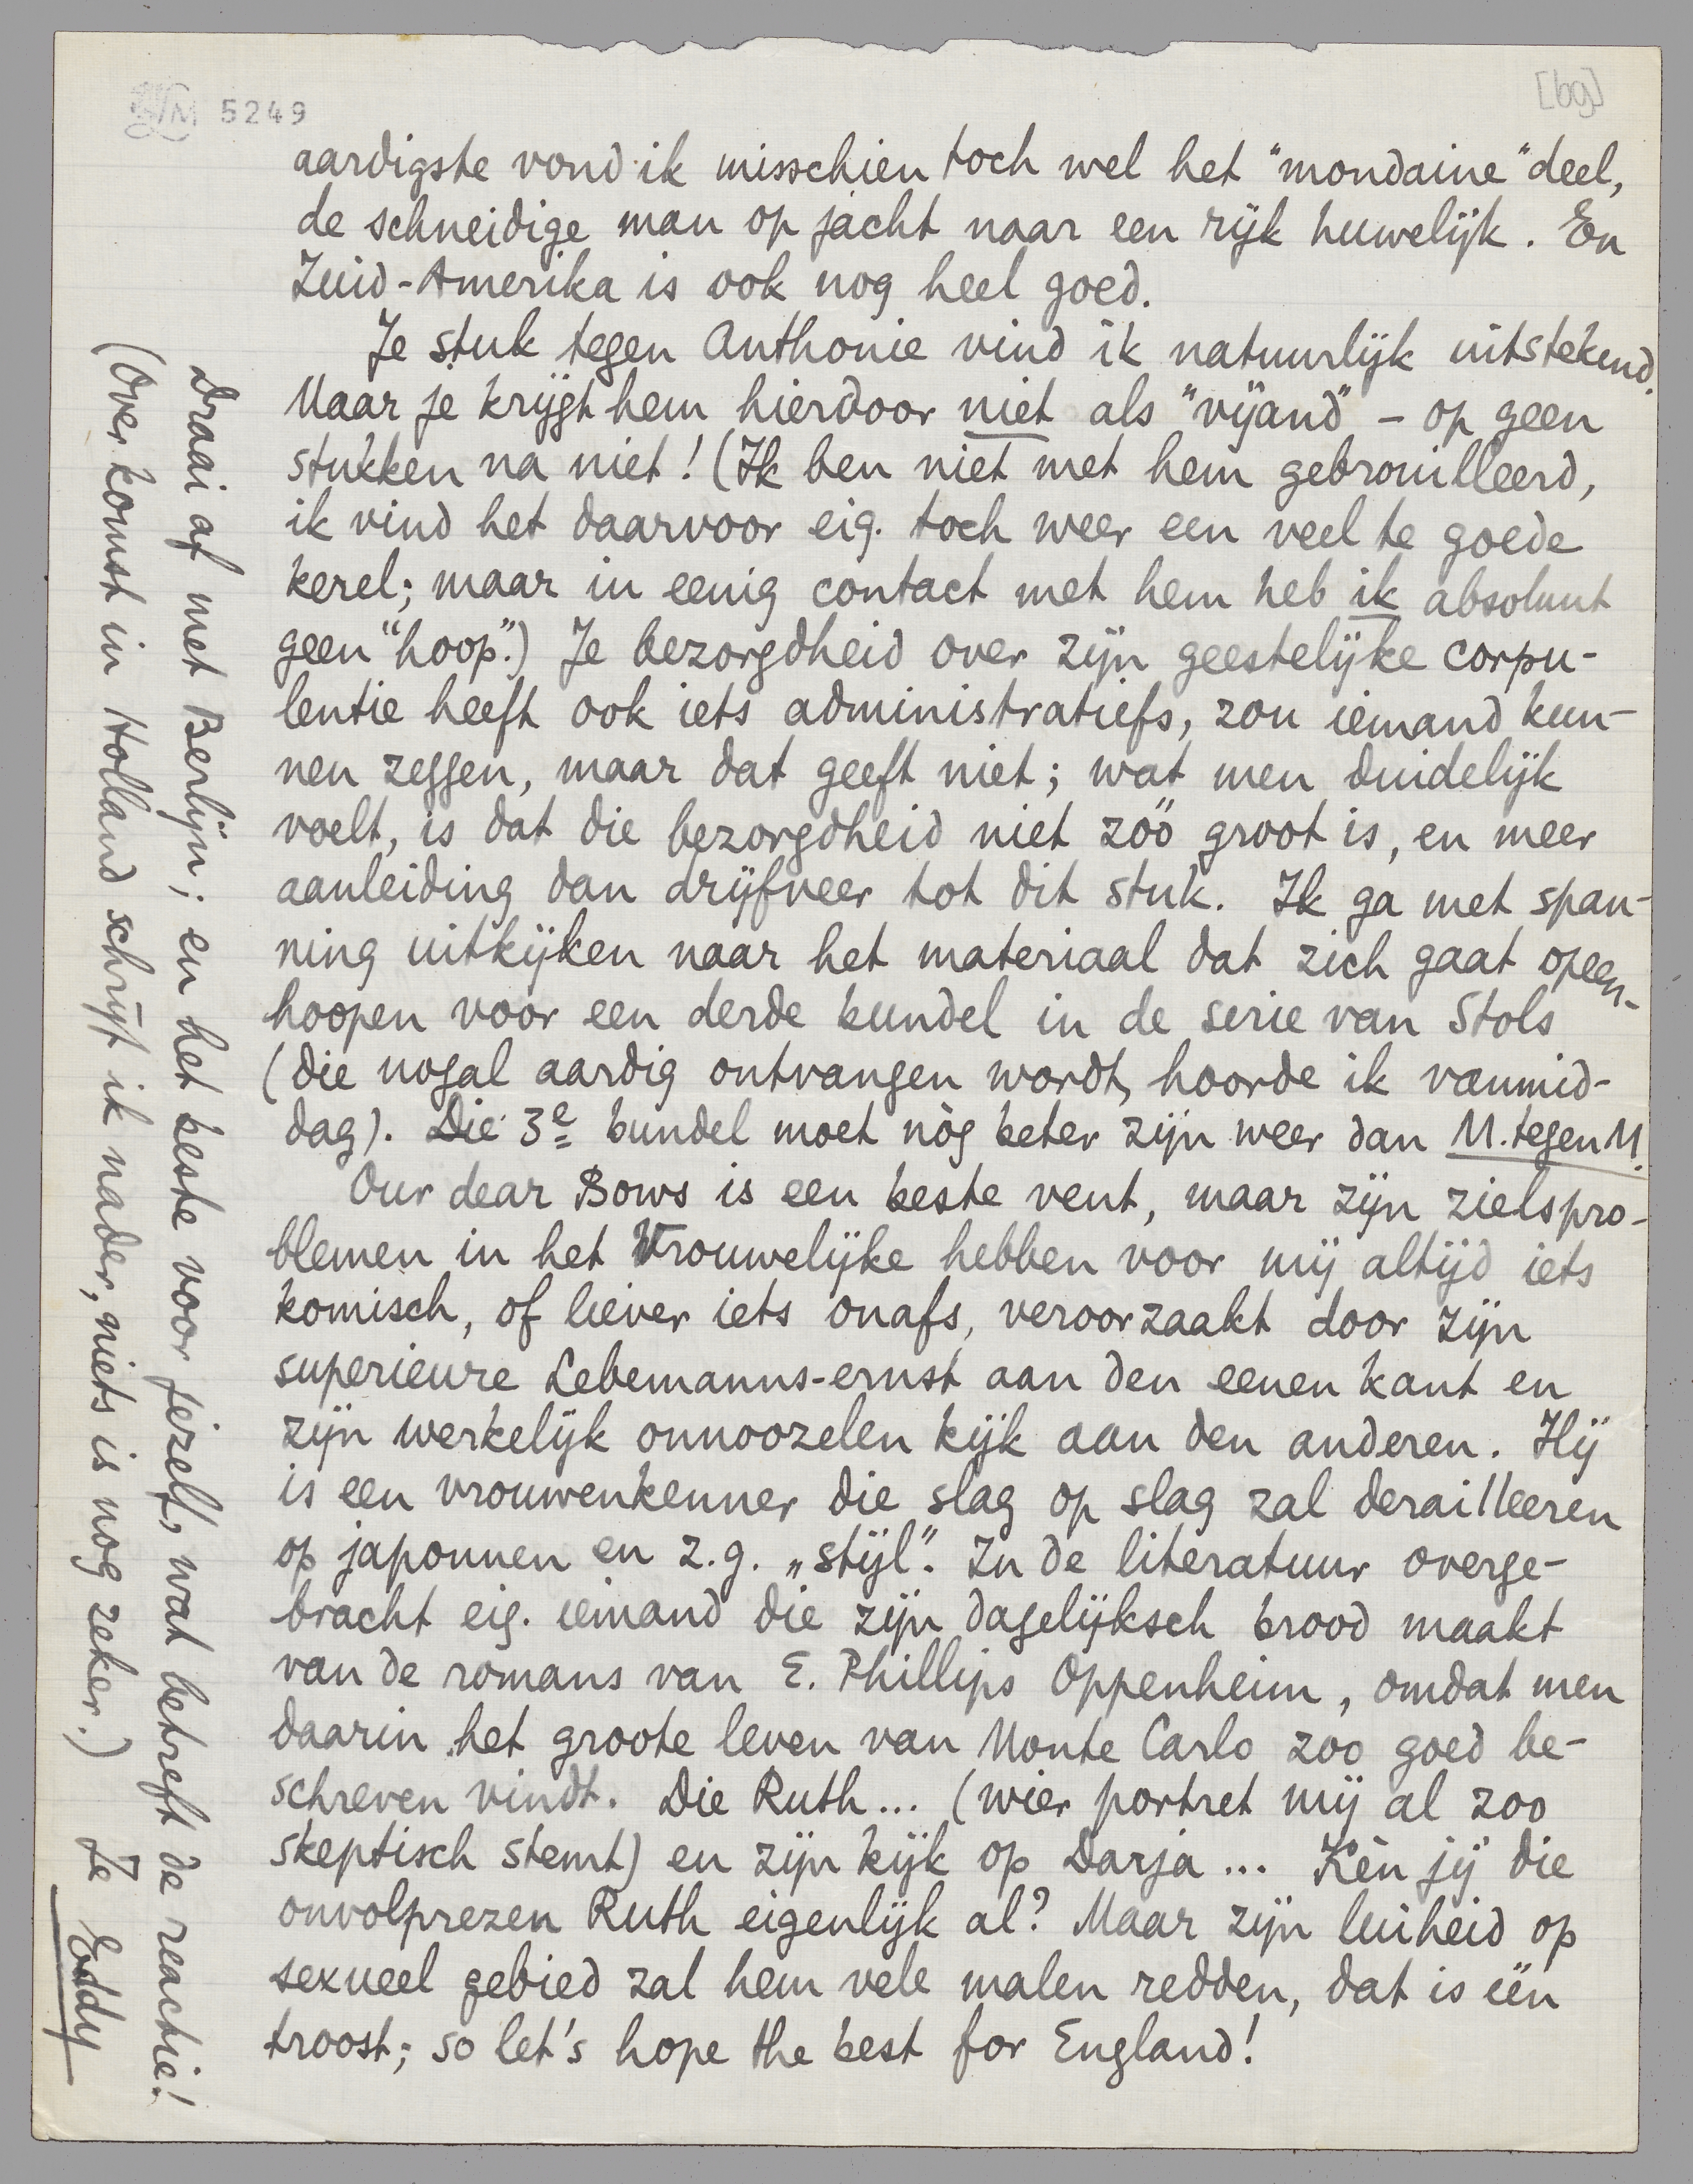 LM 5249
[bg]
aardigste vond ik misschien toch wel het "mondaine" deel,
de schneidige man op jacht naar een rijk huwelijk. En
Zuid-Amerika is ook nog heel goed.
Je stuk tegen Anthonie vind ik natuurlijk uitstekend.
Maar je krijgt hem hierdoor niet als "vijand" - op geen
stukken na niet! (Ik ben niet met hem gebrouilleerd,
ik vind het daarvoor eig. toch weer een veel te goede
kerel; maar in eenig contact met hem heb ik absoluut
geen "hoop".) Je bezorgdheid over zijn geestelijke corpu-
lentie heeft ook iets administratiefs, zou iemand kun-
nen zeggen, maar dat geeft niet; wat men duidelijk
voelt, is dat die bezorgdheid niet zóó groot is, en meer
aanleiding dan drijfveer tot dit stuk. Ik ga met span-
ning uitkijken naar het materiaal dat zich gaat opeen-
hoopen voor een derde bundel in de serie van Stols
(die nogal aardig ontvangen wordt, hoorde ik vanmid-
dag). Die 3e bundel moet nòg beter zijn weer dan M. tegen M.
Our dear Bows is een beste vent, maar zijn zielspro-
blemen in het Vrouwelijke hebben voor mij altijd iets
komisch, of liever iets onafs, veroorzaakt door zijn
superieure Lebemanns-ernst aan den eenen kant en
zijn werkelijk onnoozelen kijk aan den anderen. Hij
is een vrouwenkenner die slag op slag zal derailleeren
op japonnen en z.g. „stijl". In de literatuur overge-
bracht eig. iemand die zijn dagelijksch brood maakt
van de romans van E. Phillips Oppenheim, omdat men
daarin het groote leven van Monte Carlo zoo goed be-
schreven vindt. Die Ruth... (wier portret mij al zoo
skeptisch stemt) en zijn kijk op Darja... Kèn jij die
onvolprezen Ruth eigenlijk al? Maar zijn luiheid op
sexueel gebied zal hem vele malen redden, dat is één
troost; so let's hope the best for England!
Draai af met Berlijn; en het beste voor jezelf, wat betreft de reactie!
(Over komst in Holland schrijf ik nader, niets is nog zeker.) Je Eddy